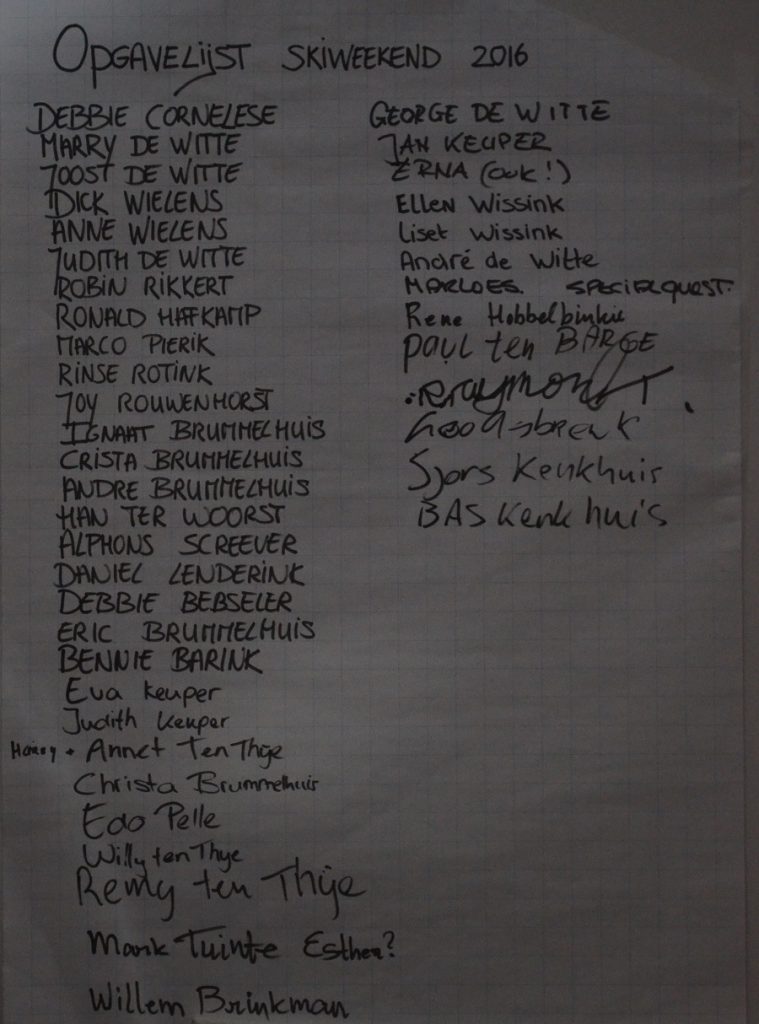 OPGAVELIJST SKIWEEKEND 2016
DEBBIE CORNELESE
MARRY DE WITTE
JOOST DE WITTE
DICK WIELENS
ANNE WIELENS
JUDITH DE WITTE
ROBIN RIKKERT
RONALD HAFKAMP
MARCO PIERIK
RINSE ROTINK
JOY ROUWENHORST
IGNAAT BRUMMELHUIS
CRISTA BRUMMELHUIS
ANDRE BRUMMELHUIS
HAN TER WOORST
ALPHONS SCREEVER
DANIEL LENDERINK
DEBBIE BEBSELER
ERIC BRUMMELHUIS
BENNIE BARINK
Eva Keuper
Judith Keuper
+ Annet Ten Thije
Christa Brummelhuis
Edo Pelle
Willy ten Thye
Remy ten Thije
Mark Tuinte Esther?
Willem Brinkman
GEORGE DE WITTE
JAN KEUPER
ERNA (OOK!)
Ellen Wissink
Liset Wissink
André de Witte
MARLOES. SPECIALQUEST.
Rene Hobbelbinkie
Paul ten BARGE
Raymond
Sjors Kenkhuis
BAS Kenkhuis